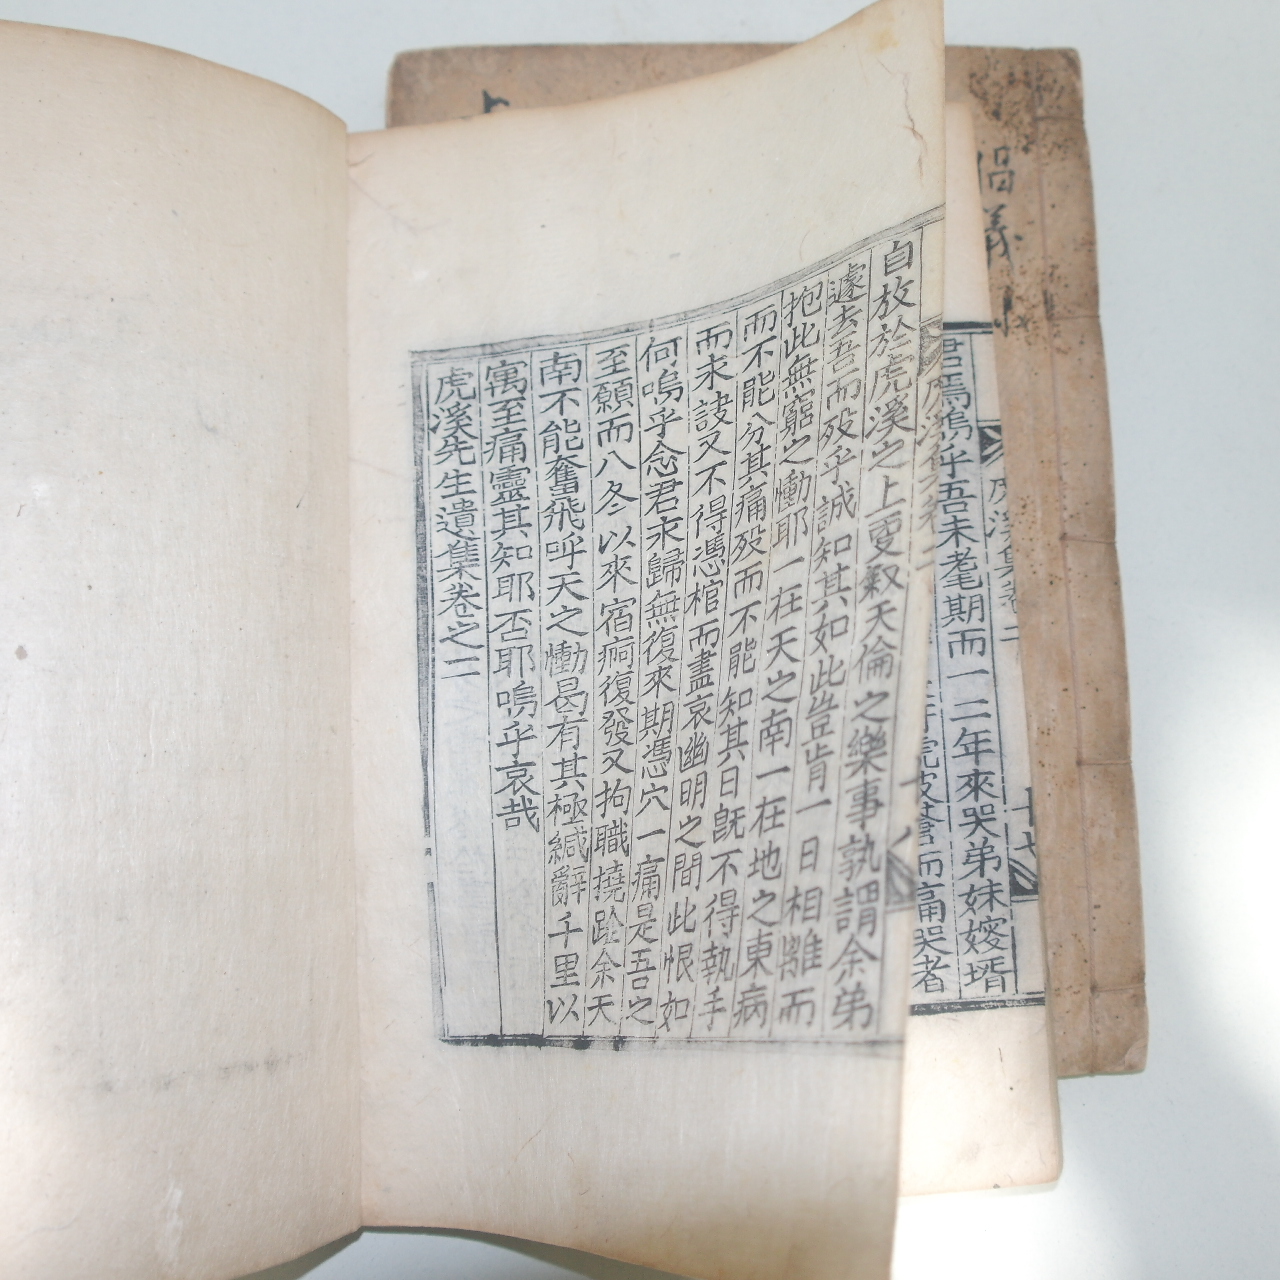 君焉嗚乎吾未耄期而一二年來哭弟妹嫂壻
而痛哭者
虎溪集卷二
自放於虎溪之上更敍天倫之樂事孰謂余弟
遽去吾而歿乎誠知其如此豈肯一日相離而
抱此無窮之慟耶一在天之南一在地之東病
而不能分其痛歿而不能知其日旣不得執手
而求訣又不得憑棺而盡哀幽明之間此恨如
何嗚乎念君求歸無復來期憑穴一痛是吾之
至願而八冬以來宿痾復發又拘職撓跧余天
南不能奮飛呼天之慟曷有其極緘辭千里以
寓至痛靈其知耶否耶嗚乎哀哉
虎溪先生遺集卷之二
倡義